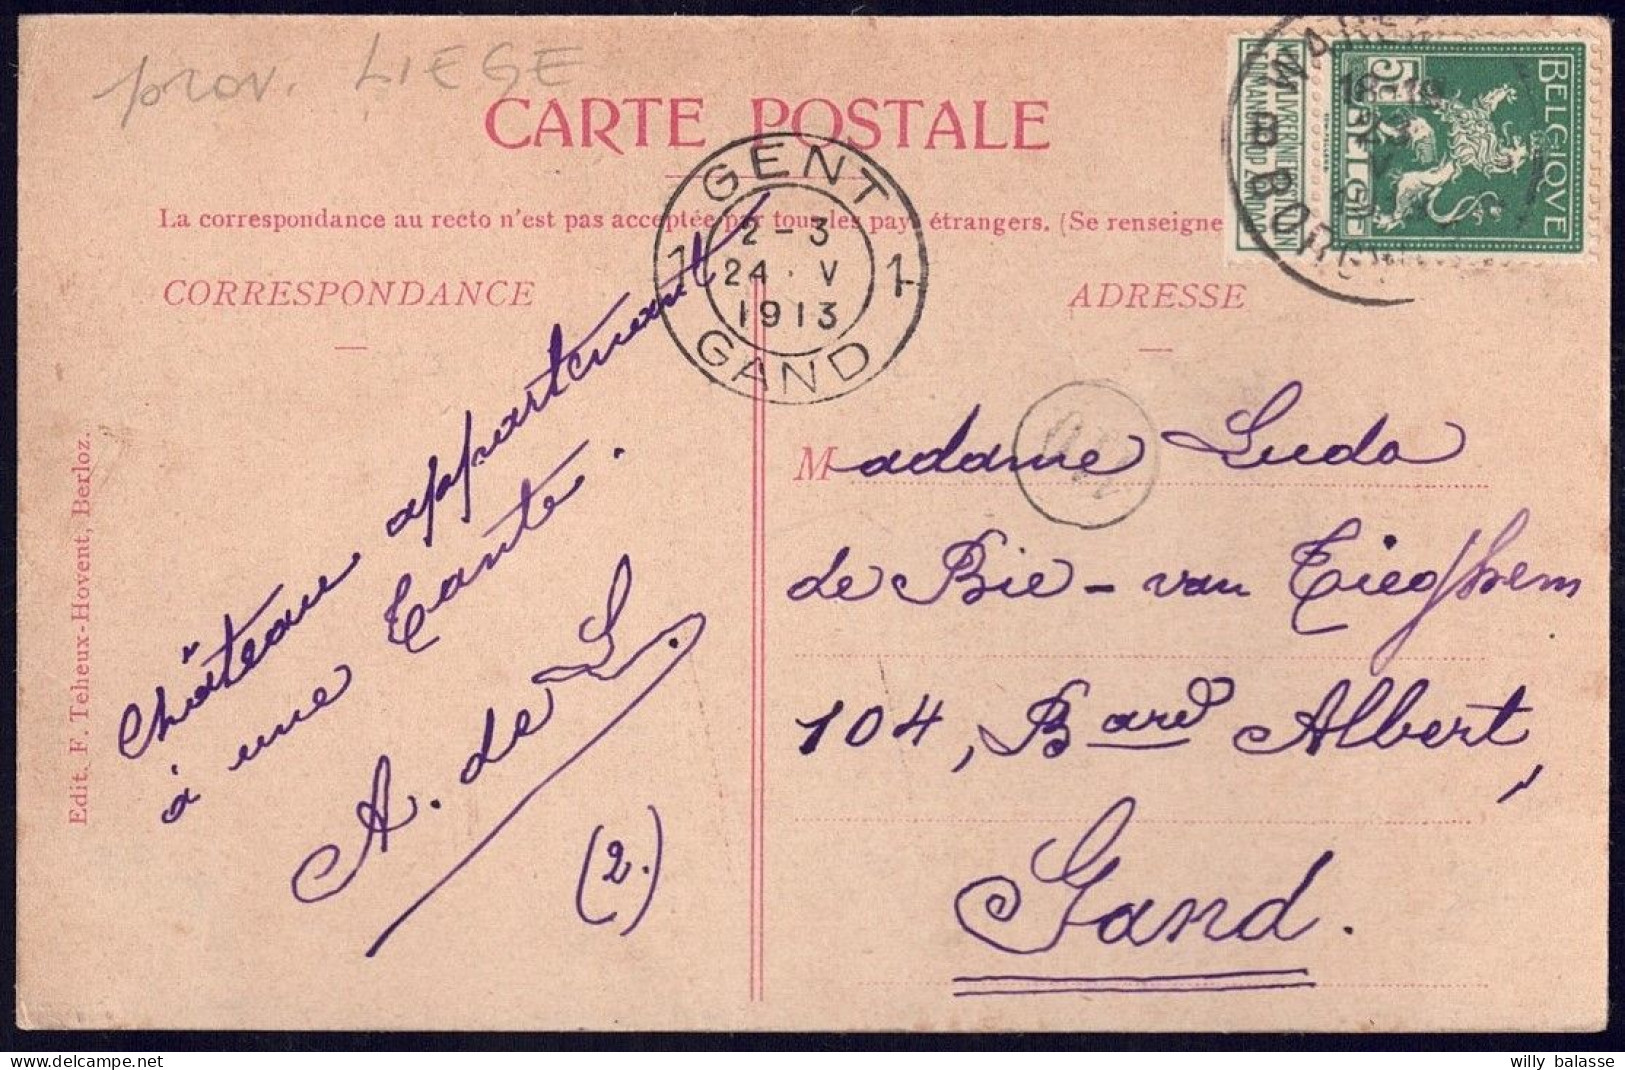 prov. LIEGE
CARTE POSTALE
La correspondance au recto n'est pas acceptée par tous les pays étrangers. (Se renseigne
CORRESPONDANCE
ADRESSE
GENT
1 1
2-3
24 · V
1913
GAND
BELGIQVE
5c 5
BELGIË
WAREM
18-19
BORGW
Château appartenant
à une Tante.
A. de L.
(2.)
Madame Luda
de Bie - van Tieghem
104, Bard Albert,
Gand.
Edit. F. Teheux-Hovent, Berloz.
willy balasse